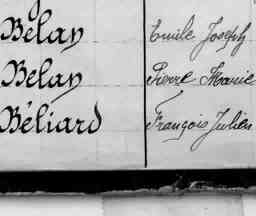 Bélan Emile Joseph
Belan Pierre Marie
Béliard François Julien